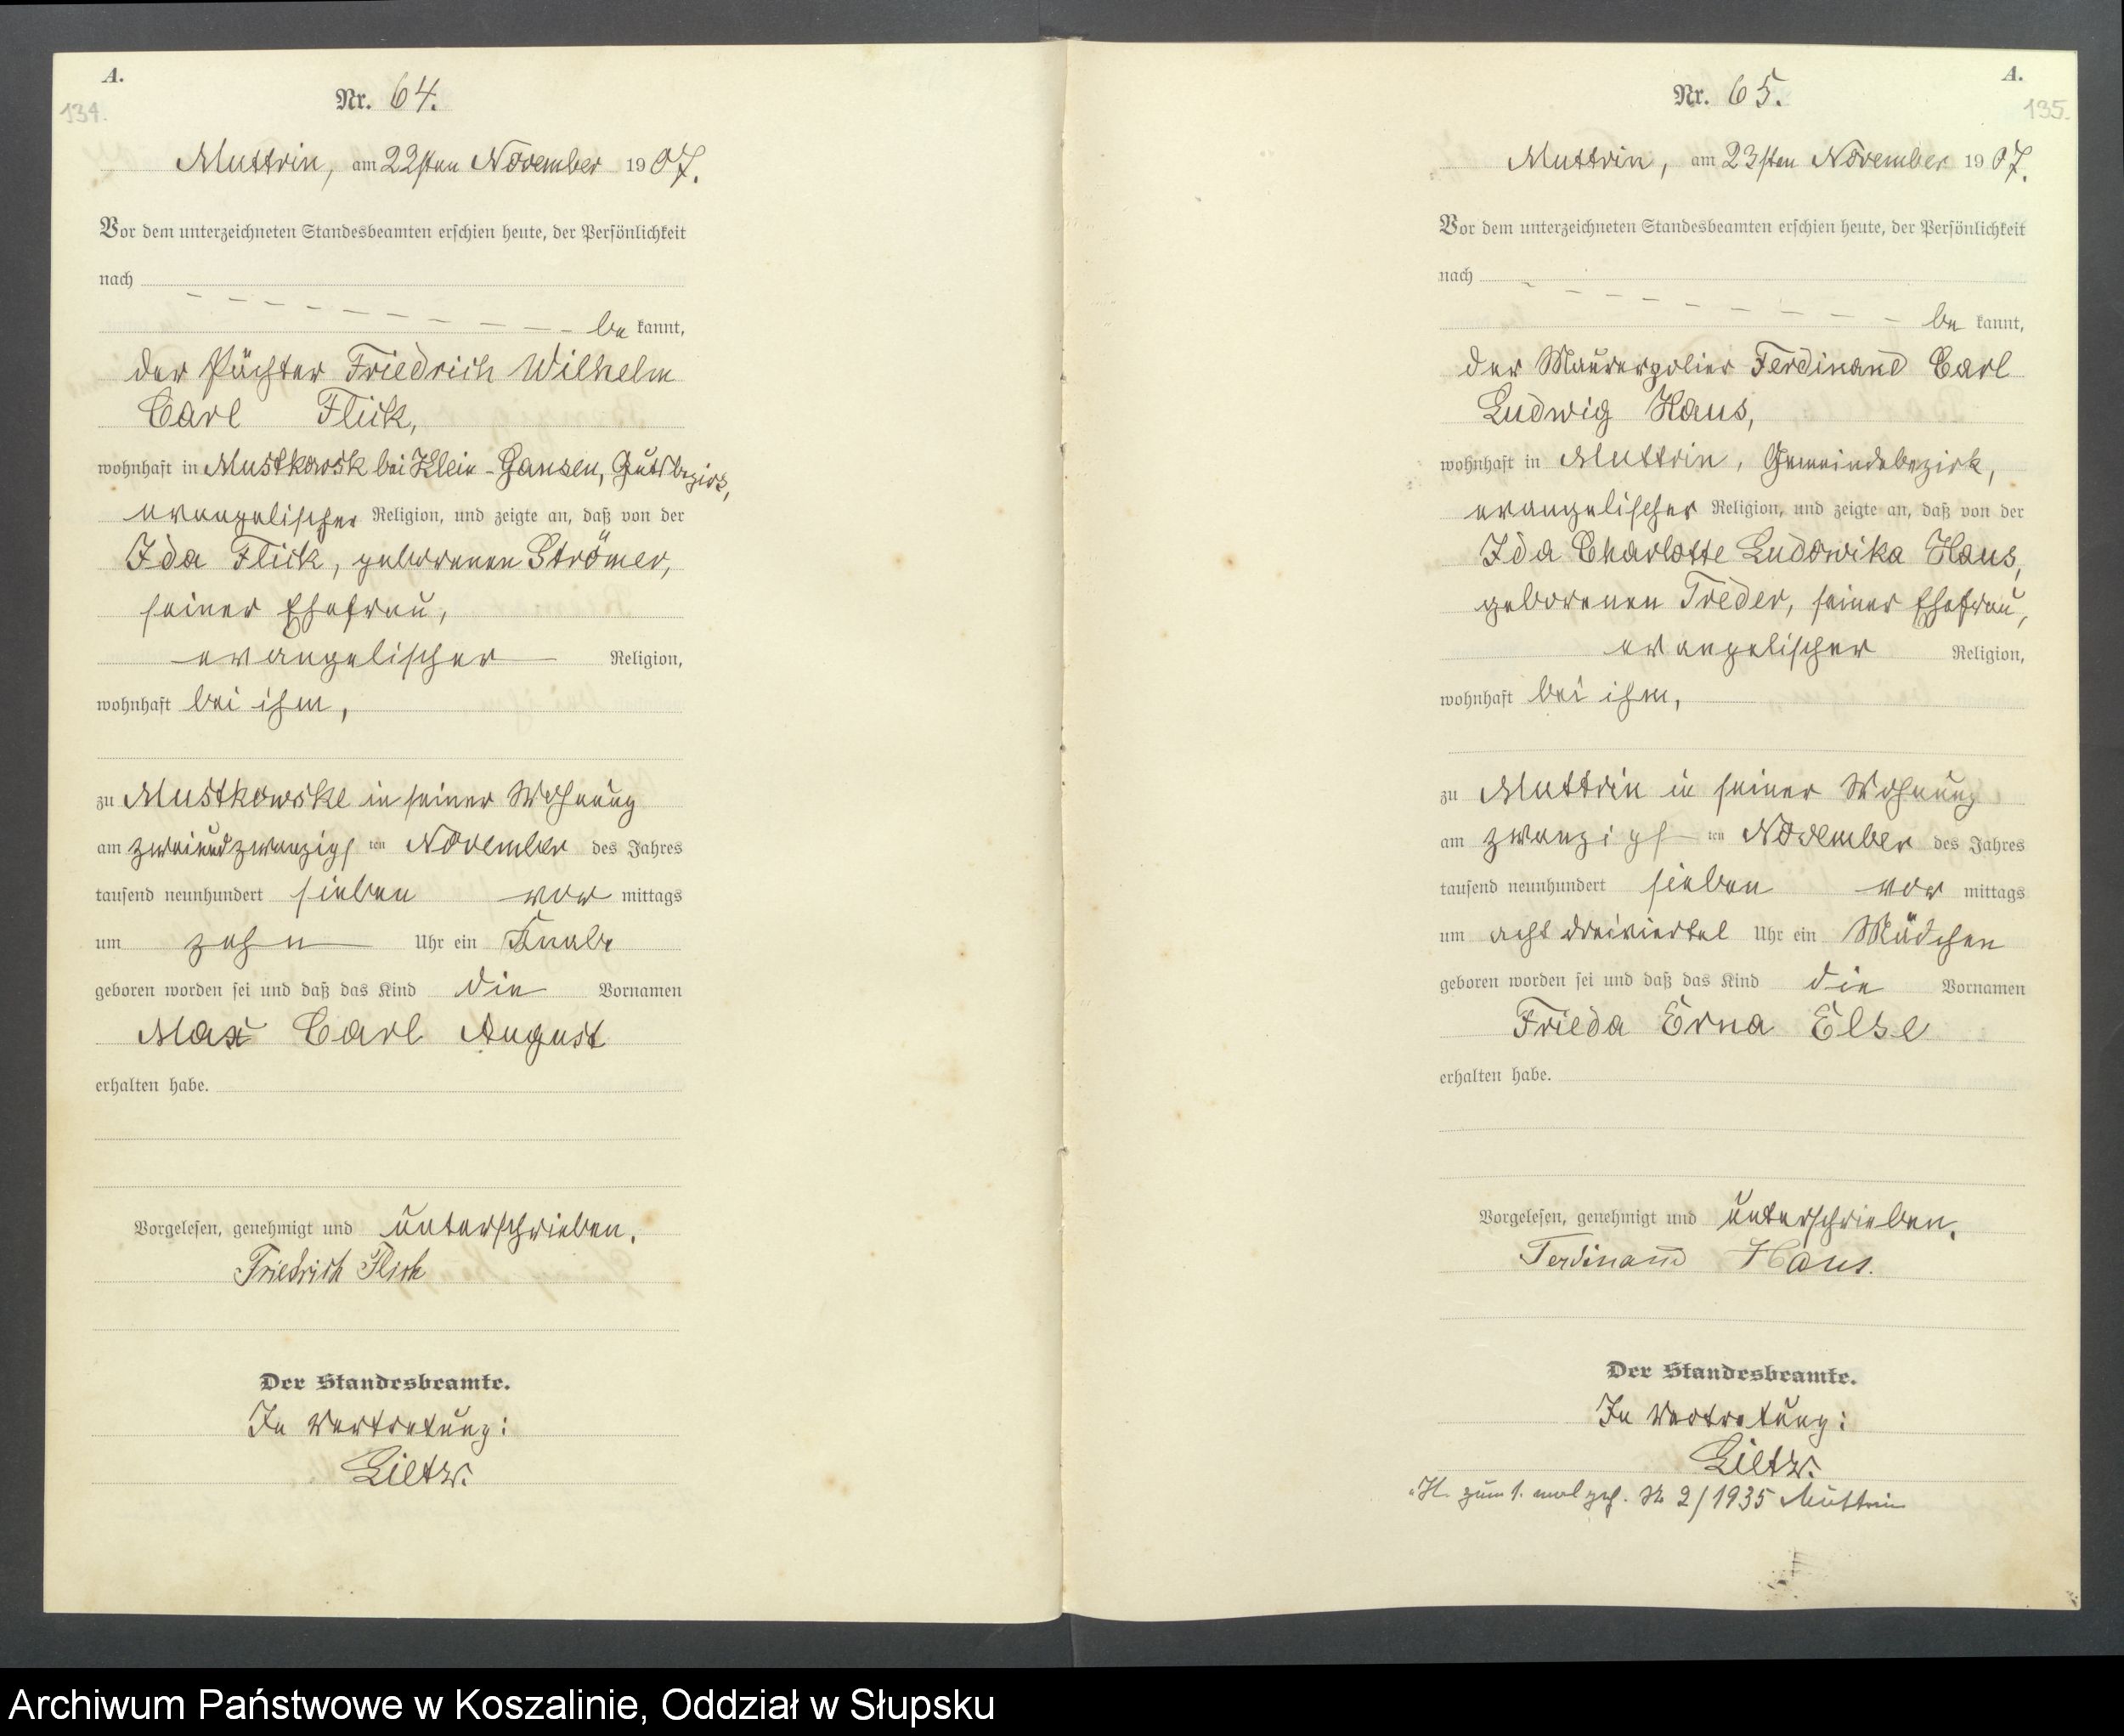 A.
134.
Nr. 64.
Muttrin, am 22sten November 1907.
Vor dem unterzeichneten Standesbeamten erschien heute, der Persönlichkeit
nach
be kannt,
der Pächter Friedrich Wilhelm
Carl Flick,
wohnhaft in Mustkowsk bei Klein-Gansen, Gutsbezirk,
evangelischer Religion, und zeigte an, daß von der
Ida Flick, geborenen Strömer,
seiner Ehefrau,
evangelischer Religion,
wohnhaft bei ihm,
zu Mustkowske in seiner Wohnung
am zweiundzwanzigs ten November des Jahres
tausend neunhundert sieben vor mittags
um zehn Uhr ein Knabe
geboren worden sei und daß das Kind die Vornamen
Max Carl August
erhalten habe.
Vorgelesen, genehmigt und unterschrieben.
Friedrich Flick
Der Standesbeamte.
In Vertretung:
Lietz.
A.
135.
Nr. 65.
Muttrin, am 23sten November 1907.
Vor dem unterzeichneten Standesbeamten erschien heute, der Persönlichkeit
nach
be kannt,
der Maurerpolier Ferdinand Carl
Ludwig Haus,
wohnhaft in Muttrin, Gemeindebezirk,
evangelischer Religion, und zeigte an, daß von der
Ida Charlotte Ludowika Haus,
geborenen Treder, seiner Ehefrau,
evangelischer Religion,
wohnhaft bei ihm,
zu Muttrin in seiner Wohnung
am zwanzigs ten November des Jahres
tausend neunhundert sieben vor mittags
um acht dreiviertel Uhr ein Mädchen
geboren worden sei und daß das Kind die Vornamen
Frieda Erna Else
erhalten habe.
Vorgelesen, genehmigt und unterschrieben.
Ferdinand Haus.
Der Standesbeamte.
In Vertretung:
Lietz.
zum 1. mal 2/1935 Muttrin
Archiwum Państwowe w Koszalinie, Oddział w Słupsku